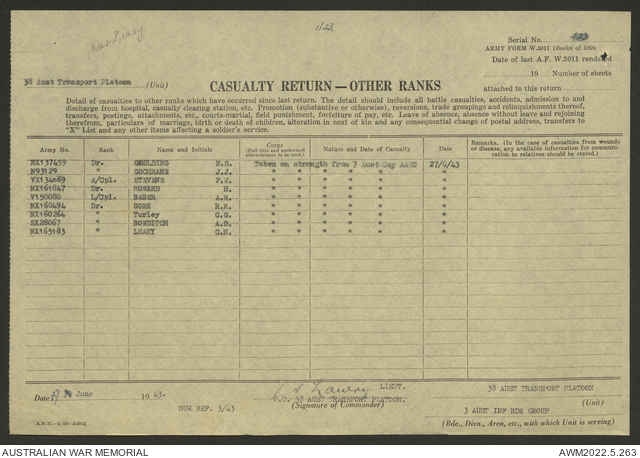 11/23
Serial No.
ARMY FORM W.3011 (Books of 100)
Date of last A.F. W.3011 rendered
38 Aust Transport Platoon (Unit)
19 Number of sheets
CASUALTY RETURN—OTHER RANKS
attached to this return
Detail of casualties to other ranks which have occurred since last return. The detail should include all battle casualties, accidents, admission to and
discharge from hospital, casualty clearing station, etc. Promotion (substantive or otherwise), reversions, trade groupings and relinquishments thereof,
transfers, postings, attachments, etc., courts-martial, field punishment, forfeiture of pay, etc. Leave of absence, absence without leave and rejoining
therefrom, particulars of marriage, birth or death of children, alteration in next of kin and any consequential change of postal address, transfers to
"X" List and any other items affecting a soldier's service.
Army No. Rank Name and Initials Corps (Full title and authorized abbreviations to be used.) Nature and Date of Casualty Date Remarks. (In the case of casualties from wounds or disease, any available information for communication to relatives should be stated.)
NX137459 Dr. GOULDING N.S. Taken on strength from 7 Aust Coy AASC 27/6/43
N93129 " COCHRANE J.J. " " " " " "
A/Cpl. STEVENS P.W. " " " " " "
NX161847 Dr. HOWARD H. " " " " " "
V150080 L/Cpl. BABER A.R. " " " " " "
NX160494 Dr. GORE R.R. " " " " " "
NX160264 " Turley C.G. " " " " " "
SX28067 " BOWDITCH A.D. " " " " " "
NX165183 " LEARY C.H. " " " " " "
LIEUT.
Date June 1943.
O.C. 38 AUST TRANSPORT PLATOON.
38 AUST TRANSPORT PLATOON
OUR REF. 3/43
(Signature of Commander)
(Unit)
3 AUST INF BDE GROUP
(Bde., Divn., Area, etc., with which Unit is serving)
AUSTRALIAN WAR MEMORIAL
AWM2022.5.263